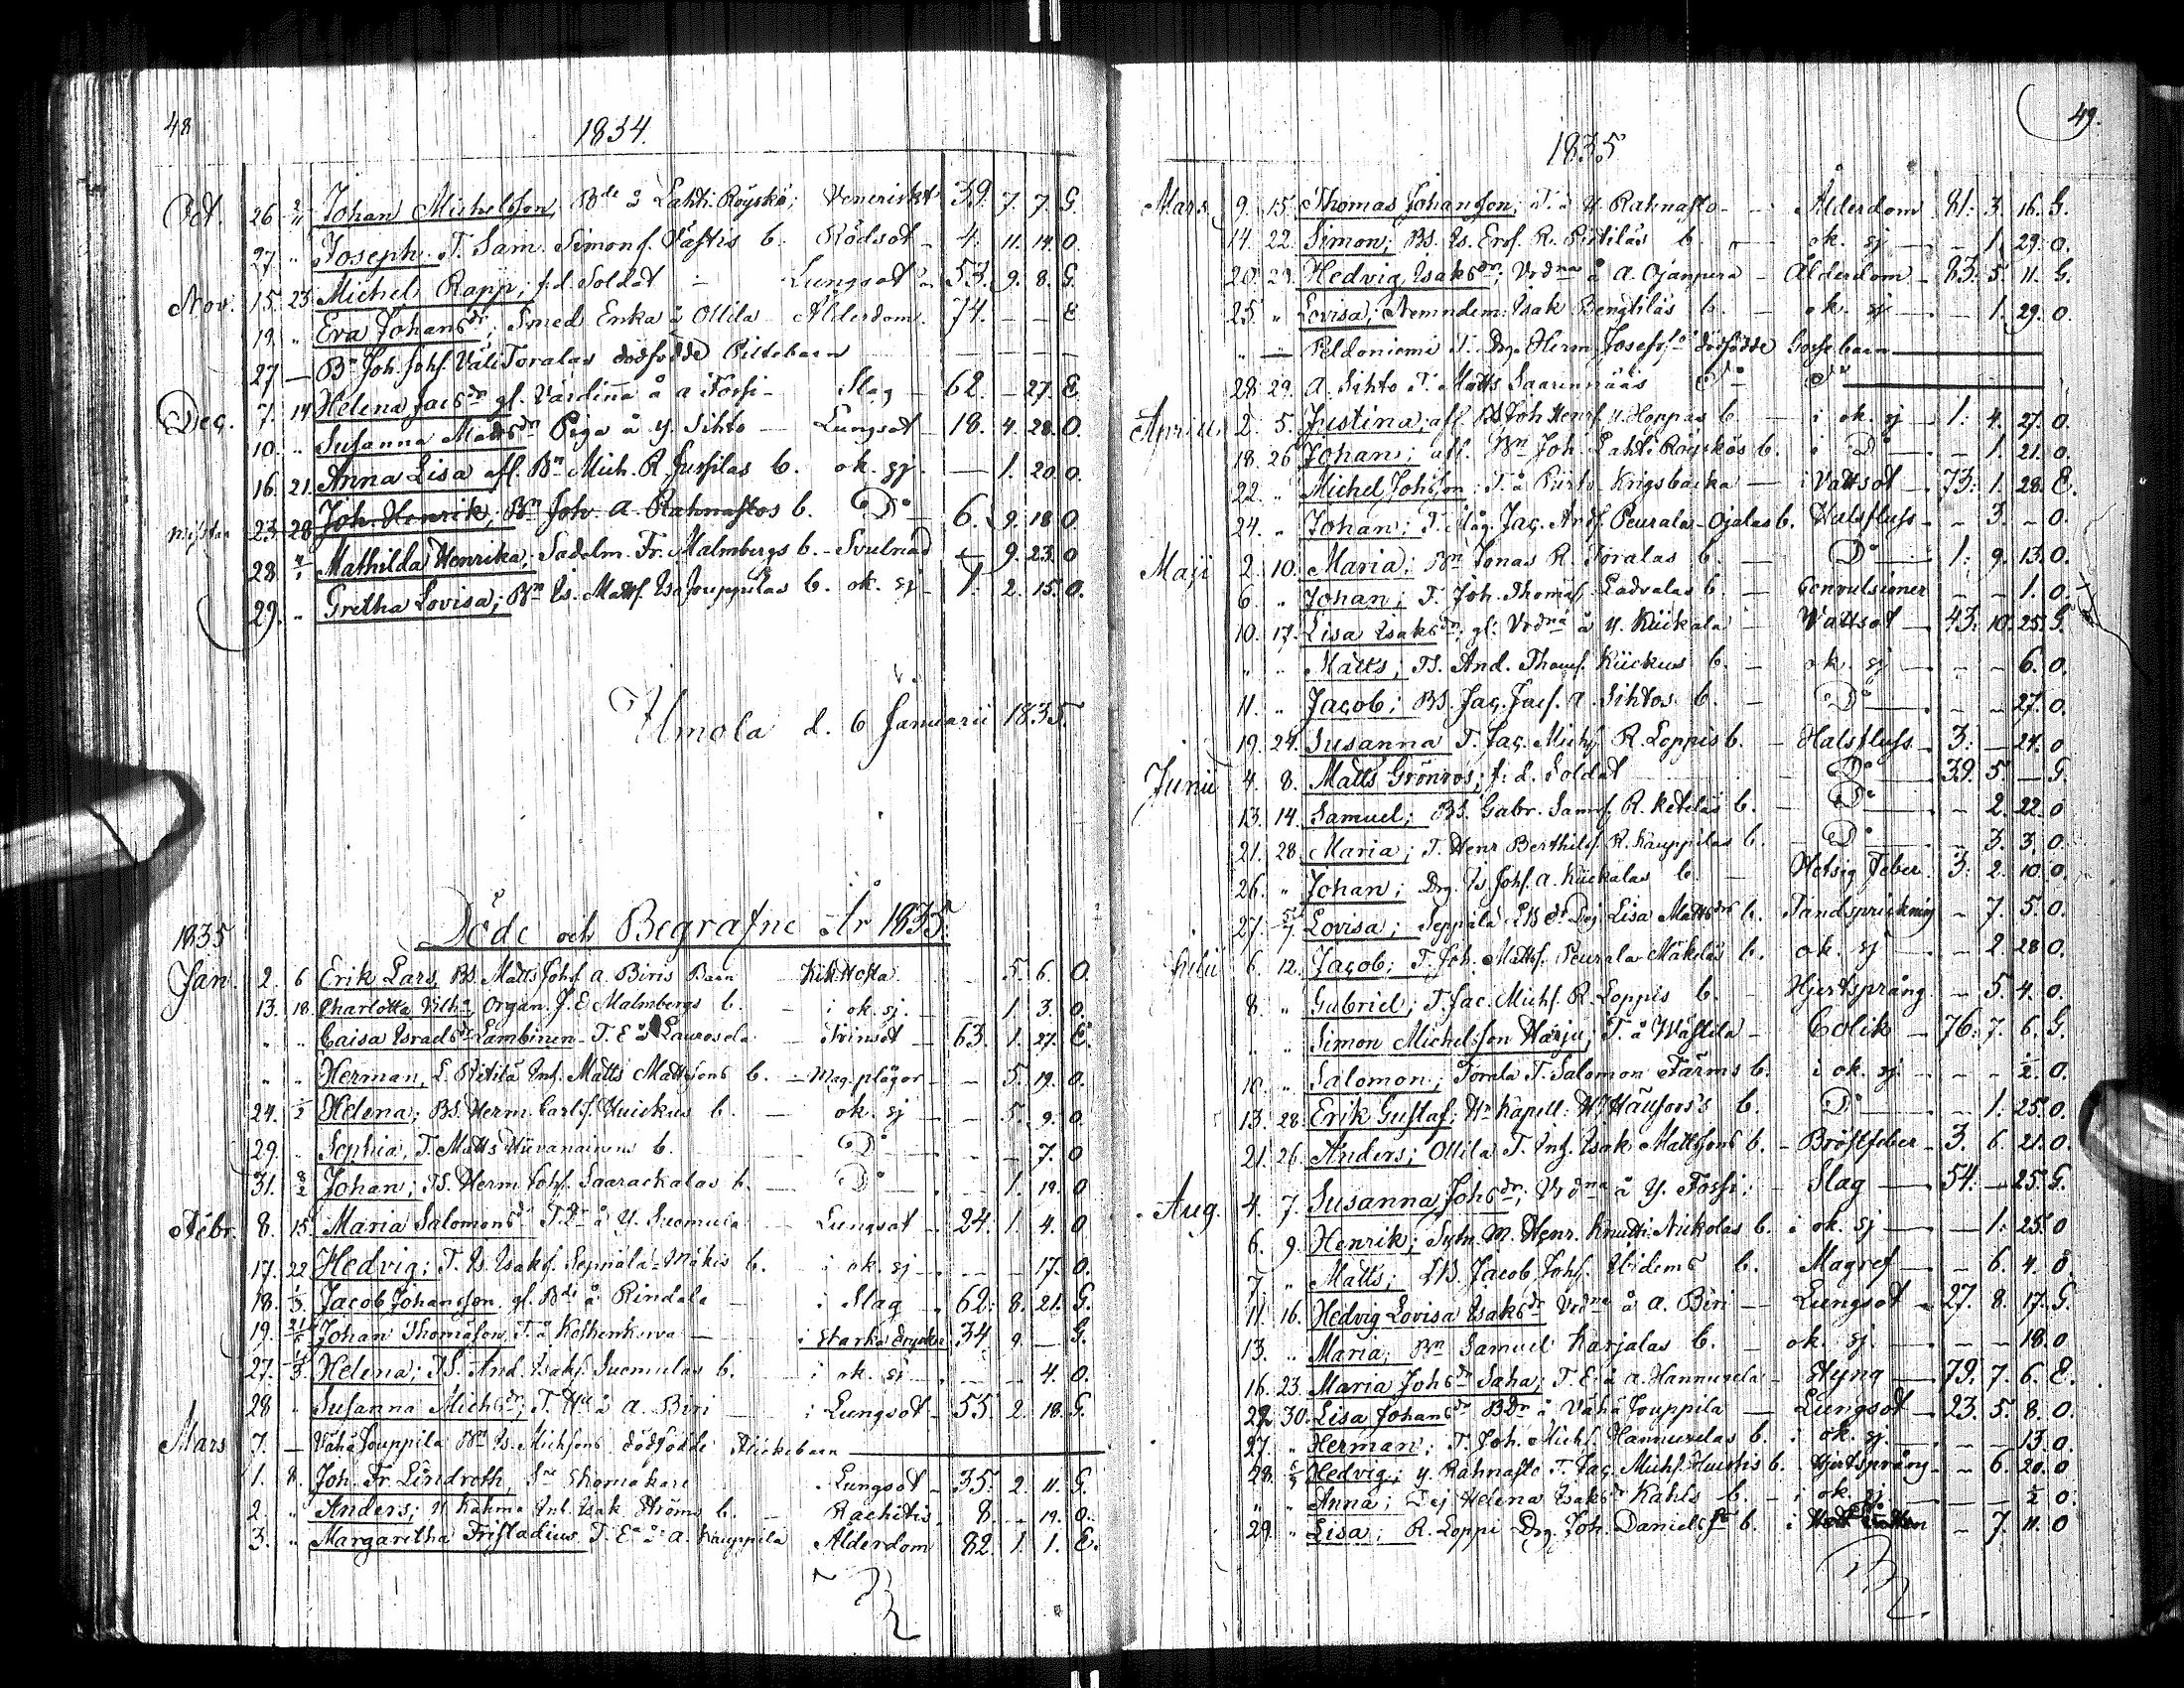 48
1834.
Oct. 26. 2/11 Johan Michelsson, Bde å Lahti Röyskö; Veneriskt 39. 7. 7. G.
27. " Joseph. T. Sam. Simons. Väftis b. Rödsot - 4. 11. 14. O.
Nov. 15. 23. Michel Rapp; f.d. Soldat - Lungsot 53. 9. 8. G.
19. " Eva Johansdr; Smed Enka å Ollila Ålderdom. 74. - - E
27 — Bn Joh. Johs. Väli Toralas dödfödde Piltebarn — — —
Dec. 7. 14 Helena Jacsdr gl. Värdina å a Forssi - Slag - 62. - 27. E.
10. " Susanna Mattsdr Piga å y. Sihto - Lungsot - 18. 4. 28. O.
16. 21. Anna Lisa afl. Bn Mich. R. Jussilas b. ok. sj. - 1. 20 O.
23. 28 Joh. Henrik; Bn Joh. a. Rahnastos b. Do - 6. 9. 18 O.
28. Mathilda Henrika; Sadelm. Fr. Malmbergs b. - Svulnad - 9. 23. O
29. " Gretha Lovisa; Bn Is. Matts. Iso Jouppilas b. ok. sj - 1. 2. 15. O.
Ilmola d. 6 Januarii 1835.
Döde och Begrafne År 1835.
1835
Jan. 2. 6 Erik Lars, BS. Matts Johs. a. Biris Barn - Kikhosta 5. 6. O.
13. 18. Charlotta Vilh:a, Organ. J. E. Malmbergs b. - i ok. sj. - 1 3. O.
" " Caisa Israelsdr Lambinen - T. E å Laurosela - Trinsot - 63. 1. 27. E.
" " Herman, L. Pitilä Inh. Matts Mattssons b. - Mag. plågor - - 5. 19. O.
24. 1/2 Helena; BS. Herm. Carls. Huickus b. - ok. sj - - 5. 9. O
29. " Sophia, T. Matts Hiivanainens b. Do - - 7. O
31. 8/2 Johan; TS. Herm. Johs. Saarackalas b. - Do - 1. 19. O
Febr. 8. 15. Maria Salomonsdr T. Dr å Y. Suomula - Lungsot - 24. 1. 4. O
17. 22 Hedvig; T. Is. Isaks. Seppälä-Mäkis b. - i ok. sj - - - 17. O.
18. 1/3. Jacob Johansson gl. Bde å Rindala - i Slag - 62. 8. 21. G.
19. Johan Thomasson, T. å Koskenkorva - i starka drycker 34. 9. — G.
27. 1/3. Helena; TS. And. Isaks. Suomulas b. - i ok. sj - - - 4. O.
28 " Susanna Michsdr; T. Hu å a. Biri - i Lungsot - 55. 2. 18. G.
Mars 7. — Vähä Jouppila Bn Is. Michsons dödfödde Flickebarn —
1. 8. Joh. Fr. Lindroth, Skomakare - Lungsot - 35. 2. 11. G.
2. " Anders; Y. Kahma Inh. Isak Ströms b. - Rachitis. 8. - 19. O.
3. " Margaritha Fristadius T. Ea å a. Kauppila Ålderdom 82. 1. 1. E.
49.
1835
Mars 9. 15. Thomas Johansson; T. å Y. Rahnasto - - Ålderdom 81. 3. 16. G.
14. 22. Simon; BS. Is. Ers. R. Pirtiläs b. - ok. sj - - 1. 29. O.
20. 29. Hedvig Isaksdr; Vrdna å a. Ojanpera - Ålderdom - 83. 5. 11. G.
25. " Lovisa; Nemndem. Isak Bengtiläs b. - ok. sj - - 1. 29. O.
" — Peldoniemi T. Drg. Herm. Josefss dödfödde Gossebarn —
28. 29. a. Sihto T. Matts Saarenmääs Do Do —
April. 2. 5. Justina; afl. BS Joh. Henrs. Y. Hoppas b. - i ok. sj - 1. 4. 27. O.
18. 26 Johan; afl. Bn Joh. Lahti Röyskös b. - i Do - - 1. 21. O.
22. " Michel Johsson; T. å Pirto. Krigsbacka - i Vattsot - 73. 1. 28. E.
24. " Johan; T. Måg. Jac. Ands. Peurala-Ojalas b. Halsfluss - - 3. - O.
Maji 2. 10. Maria; Bn Jonas R. Toralas b. - Do - 1. 9. 13. O.
6. " Johan; T. Joh. Thomas. Ladvalas b. - Convulsioner - - 1. O.
10. 17. Lisa Isaksdr; gl. Vrdna å Y. Kuckala - Vattsot - 43. 10. 25. G.
" " Matts; TS. And. Thoms. Kuckus b. - ok. sj - - - 6. O.
11. " Jacob; BS. Jac. Jacs. a. Sihtos b. - Do - - - 27. O.
19. 24. Susanna T. Jac. Michs. R. Loppis b. - Halsfluss - 3. - 24. O
Junii 4. 8. Matts Grönros; f. d. Soldat Do - 39. 5. - G.
13. 14. Samuel; BS. Gabr. Sams. R. Ketelas b. - Do - - 2. 22. O
21. 28. Maria; T. Henr Berthils. R. Kauppilas b. - Do - - 3. 3. O.
26. " Johan; Drg. Is. Johs. a. Kuckalas b. - Hetsig Feber. 3. 2. 10. O.
27. 5/7 Lovisa; Seppälä Dej Lisa Mattsdrs b. Tandsprickning - 7. 5. O.
Julii 6. 12. Jacob; T. Joh. Matts. Peurala-Mäkeläs b. ok. sj - - 2. 28 O.
8. " Gabriel; T. Jac. Michs. R. Loppis b. - Hjertsprång - 5. 4. O.
" " Simon Michelsson Harju; T. å Väftila - Colik - 76. 7. 6. G.
10. " Salomon; Torala T. Salomon Färms b. i ok. sj - - - 1/2. O.
13. 28. Erik Gustaf; Hr Kapell. Häusoos's b. Do - - 1. 25. O.
21. 26. Anders; Ollila T. Inh. Isak Mattssons b. - Bröstfeber - 3. 6. 21. O.
Aug. 4. 7. Susanna Johsdr; Vrdna å Y. Fossi; - Slag - 54. - 25. G.
6. 9. Henrik; Sytn. M. Henr. Knutti-Nickolas b. i ok. sj - - 1. 25. O
7 " Matts; LB. Jacob Johs. Ibidems b. Magref - - 6. 4. O.
11. 16. Hedvig Lovisa Isaksdr Vrdna å a. Biri - Lungsot - 27. 8. 17. G.
13. " Maria; Bn Samuel Karjalas b. - ok. sj. - - - 18. O
16. 23. Maria Johsdr Saha; T. E. å a. Hannuxela - Styng - 79. 7. 6. E.
22. 30. Lisa Johansdr BDr å Vähä Jouppila - Lungsot - 23. 5. 8. O.
27. " Herman; T. Joh. Michs. Hannuxelas b. i ok. sj. - - - 13. O.
28. 6/9 Hedvig; Y. Rahnasto T. Jac. Michs. Huishis b. Hjertsprång - - 6. 20. O
" " Anna; Dej Helena Isaksdr Kahls b. - i ok. sj - - - 1/2 O.
29. " Lisa; R. Loppi Drg. Joh. Danielssons b. i - 7. 11. O